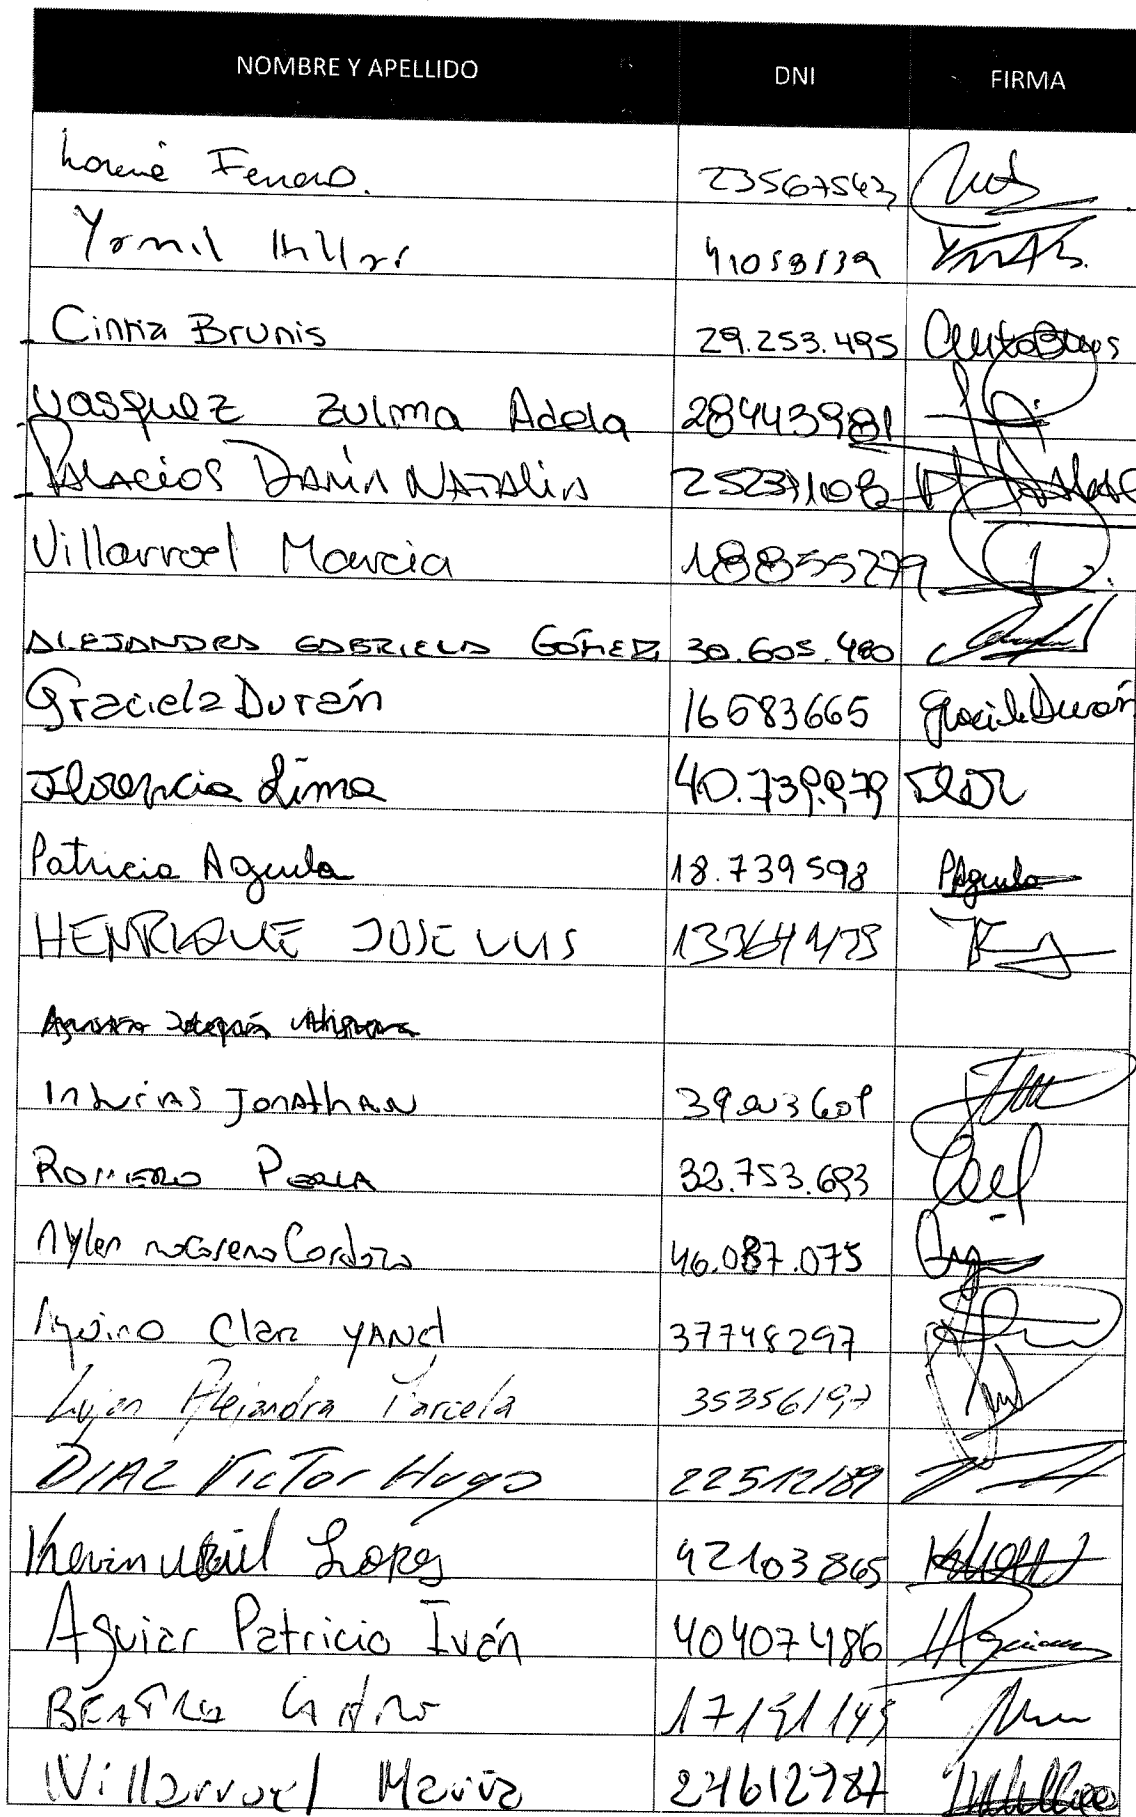 NOMBRE Y APELLIDO DNI FIRMA
Ferrero. 23567543
Yamil 41058139
Cintia Brunis 29.253.495
Vasquez Zulma Adela 28443981
Palacios Daria Natalia 25237108
Villarroel Marcia 18855279
ALEJANDRA GABRIELA GÓMEZ 30.605.480
Graciela Durán 16583665 Graciela Durán
Florencia Lima 40.739.979 Flor
Patricia Aguila 18.739598 PAguila
HENRIQUE JOSE LUIS 13364175
Jonathan
ROMERO PERLA 32.753.693
Aylen Macarena Cordozo 46.087.075
Aquino Clara YANEL 37748297
Lujan Alejandra Marcela 35356197
DIAZ VicTor Hugo 22512189
Kevin Uriel Lopez 42103865
Aguiar Patricio Iván 40407486 IAguiar
BEATRIZ CASTRO
Villarroel María 24612987